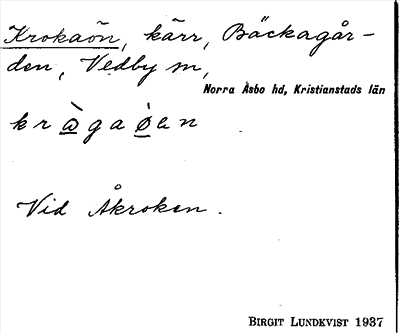 Krokaön, kärr, Bäckagår-
den, Vedby sn,
Norra Åsbo hd, Kristianstads län
Vid Åkroken.
BIRGIT LUNDKVIST 1937